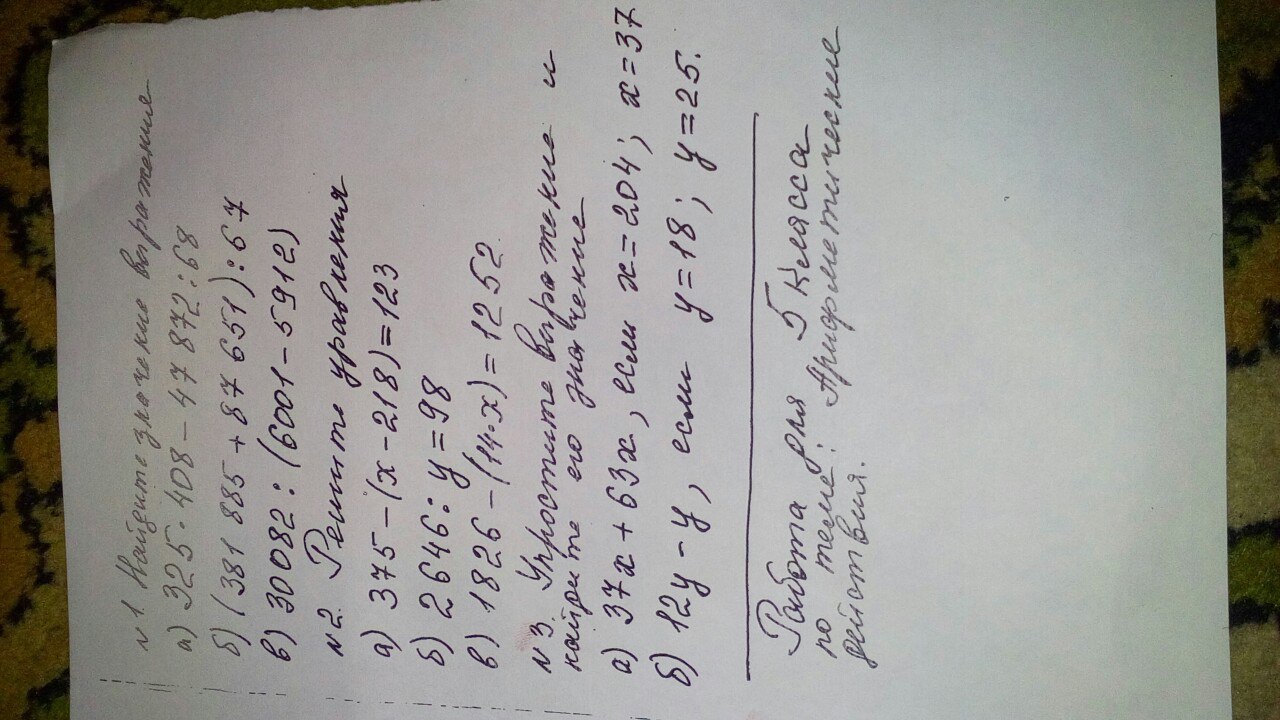 №1. Найдите значение выражения
а) 325·408 - 47872:68
б) (381885 + 87651):67
в) 30082:(6001-5912)
№2. Решите уравнения
а) 375-(x-218)=123
б) 2646:y=98
в) 1826-(14·x)=1252
№3. Упростите выражение и
найдите его значение
а) 37x+63x, если x=204; x=37
б) 12y-y, если y=18; y=25.
Работа для 5 класса
по теме: Арифметические
действия.